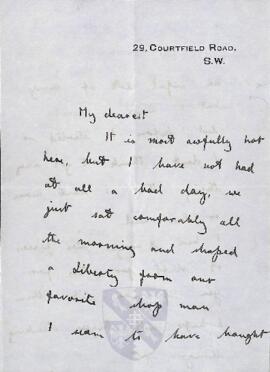 29, COURTFIELD ROAD,
S.W.
My dearest
It is most awfully hot
here, but I have not had
at all a bad day, we
just sat comforably all
the morning and shoped
a Liberty from our
favorite shop man
I seem to have bought